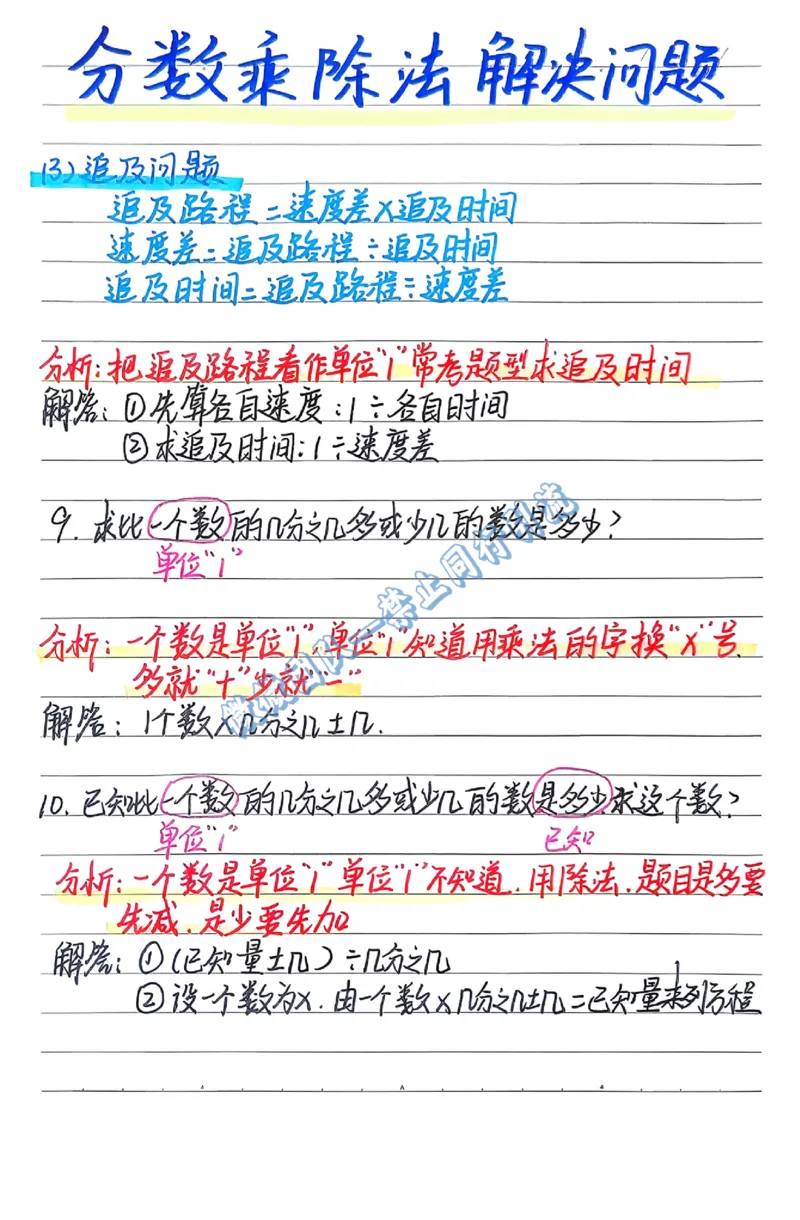 分数乘除法解决问题
(3)追及问题
追及路程=速度差×追及时间
速度差=追及路程÷追及时间
追及时间=追及路程÷速度差
分析:把追及路程看作单位"1"常考题型求追及时间
解答:①先算各自速度:1÷各自时间
②求追及时间:1÷速度差
9.求比一个数的几分之几多或少几的数是多少?
单位"1"
分析:一个数是单位"1",单位"1"知道用乘法的字换"×"号.
多就"+"少就"-"
解答:1个数×几分之几±几.
10.已知比一个数的几分之几多或少几的数是多少,求这个数?
单位"1" 已知
分析:一个数是单位"1"单位"1"不知道.用除法.题目是多要
先减.是少要先加
解答:①(已知量±几)÷几分之几
②设一个数为x.由一个数×几分之几±几=已知量来列方程